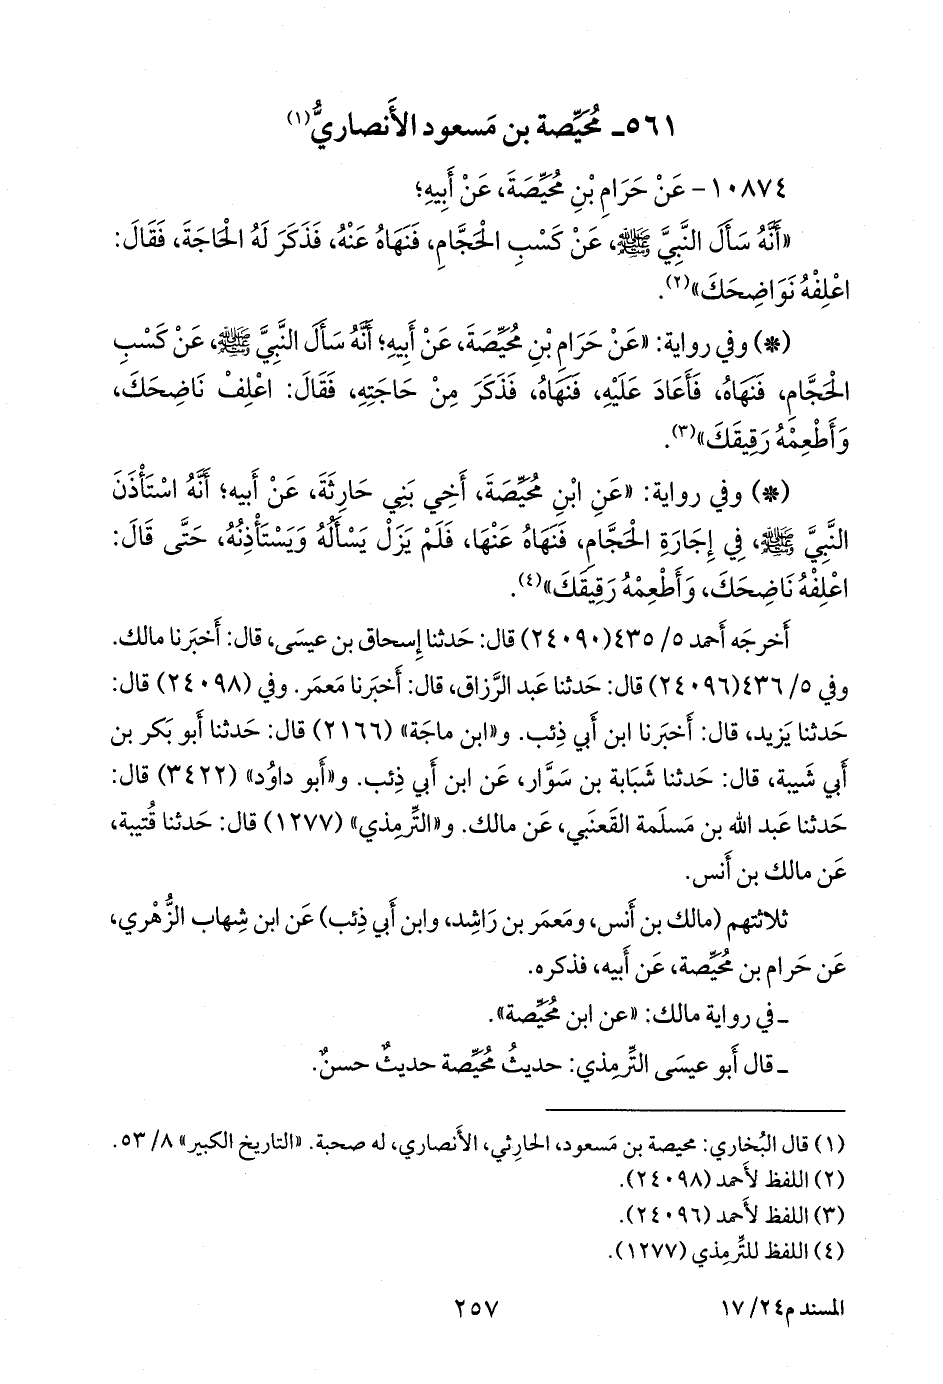 ٥٦١ـ مُحَيِّصة بن مَسعود الأَنصاريُّ(١)
١٠٨٧٤ - عَنْ حَرَامِ بْنِ مُحَيِّصَةَ، عَنْ أَبِيهِ؛
«أَنَّهُ سَأَلَ النَّبِيَّ ﷺ، عَنْ كَسْبِ الْحَجَّامِ، فَنَهَاهُ عَنْهُ، فَذَكَرَ لَهُ الْحَاجَةَ، فَقَالَ:
اعْلِفْهُ نَوَاضِحَكَ»(٢).
(*) وفي رواية: «عَنْ حَرَامِ بْنِ مُحَيِّصَةَ، عَنْ أَبِيهِ؛ أَنَّهُ سَأَلَ النَّبِيَّ ﷺ، عَنْ كَسْبِ
الْحَجَّامِ، فَنَهَاهُ، فَأَعَادَ عَلَيْهِ، فَنَهَاهُ، فَذَكَرَ مِنْ حَاجَتِهِ، فَقَالَ: اعْلِفْ نَاضِحَكَ،
وَأَطْعِمْهُ رَقِيقَكَ»(٣).
(*) وفي رواية: «عَنِ ابْنِ مُحَيِّصَةَ، أَخِي بَنِي حَارِثَةَ، عَنْ أَبيه؛ أَنَّهُ اسْتَأْذَنَ
النَّبِيَّ ﷺ، فِي إِجَارَةِ الْحَجَّامِ، فَنَهَاهُ عَنْهَا، فَلَمْ يَزَلْ يَسْأَلُهُ وَيَسْتَأْذِنُهُ، حَتَّى قَالَ:
اعْلِفْهُ نَاضِحَكَ، وَأَطْعِمْهُ رَقِيقَكَ»(٤).
أَخرجَه أَحمد ٥/ ٤٣٥(٢٤٠٩٠) قال: حَدثنا إِسحاق بن عيسَى، قال: أَخبَرنا مالك.
وفي ٥/ ٤٣٦(٢٤٠٩٦) قال: حَدثنا عَبد الرَّزاق، قال: أَخبَرنا مَعمَر. وفي (٢٤٠٩٨) قال:
حَدثنا يَزيد، قال: أَخبَرنا ابن أَبي ذِئب. و«ابن ماجَة» (٢١٦٦) قال: حَدثنا أَبو بَكر بن
أَبي شَيبة، قال: حَدثنا شَبَابة بن سَوَّار، عَن ابن أَبي ذِئب. و«أَبو داوُد» (٣٤٢٢) قال:
حَدثنا عَبد الله بن مَسلَمة القَعنَبي، عَن مالك. و«التِّرمِذي» (١٢٧٧) قال: حَدثنا قُتيبة،
عَن مالك بن أَنس.
ثلاثتهم (مالك بن أَنس، ومَعمَر بن رَاشِد، وابن أَبي ذِئب) عَن ابن شِهاب الزُّهْري،
عَن حَرام بن مُحَيِّصة، عَن أَبيه، فذكره.
ـ في رواية مالك: «عن ابن مُحَيِّصة».
ـ قال أَبو عيسَى التِّرمِذي: حديثُ مُحَيِّصة حديثٌ حسنٌ.
(١) قال البُخاري: محيصة بن مَسعود، الحارِثي، الأَنصاري، له صحبة. «التاريخ الكبير» ٨/ ٥٣.
(٢) اللفظ لأَحمد (٢٤٠٩٨).
(٣) اللفظ لأَحمد (٢٤٠٩٦).
(٤) اللفظ للتِّرمِذي (١٢٧٧).
المسند م٢٤/ ١٧
٢٥٧